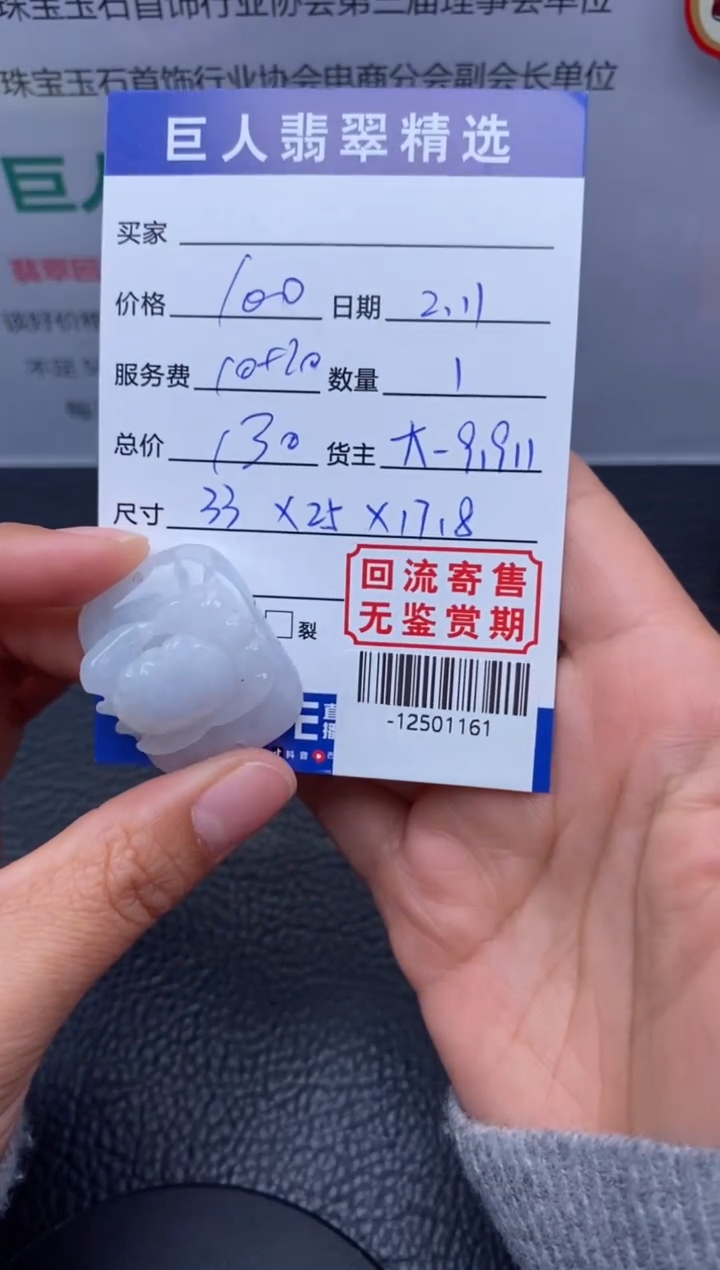 珠宝玉石首饰行业协会第三届理事会单位
珠宝玉石首饰行业协会电商分会副会长单位
巨人
翡翠回
谈好价格
不足
巨人翡翠精选
买家
价格 100 日期 2.11
服务费 10+20 数量 1
总价 130 货主 大-9.911
尺寸 33 X 25 X 17.8
回流寄售
无鉴赏期
裂
-12501161
直播
抖音